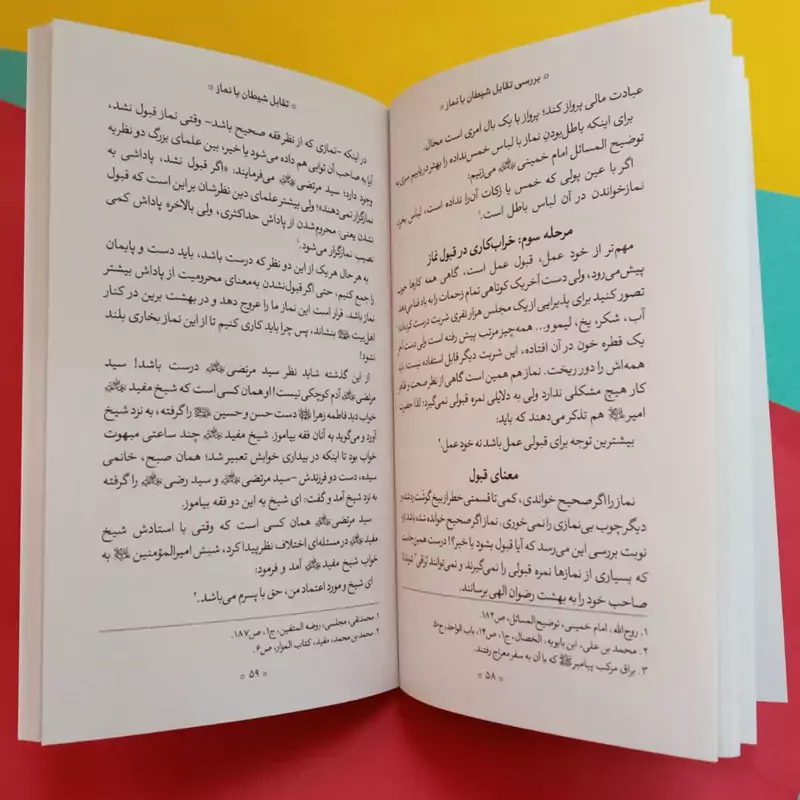 بررسی تقابل شیطان با نماز
عبادت مالی پرواز کند؛ پرواز با یک بال امری است محال.
برای اینکه باطل‌بودنِ نماز با لباس خمس‌نداده را بهتر دریابیم سری به
توضیح المسائل امام خمینی می‌زنیم:
اگر با عین پولی که خمس یا زکات آن‌را نداده است، لباس بخرد
نمازخواندن در آن لباس باطل است.۱
مرحله سوم: خراب‌کاری در قبول نماز
مهم‌تر از خود عمل، قبول عمل است، گاهی همه کارها خوب
پیش‌می‌رود، ولی دست آخر یک کوتاهی تمام زحمات را به باد فنا می‌دهد
تصور کنید برای پذیرایی از یک مجلس هزار نفری شربت درست کرده‌اند؛
آب، شکر، یخ، لیمو و... همه‌چیز مرتب پیش رفته است ولی دست آخر
یک قطره خون در آن افتاده، این شربت دیگر قابل استفاده نیست، باید
همه‌اش را دور ریخت. نماز هم همین است گاهی از نظر صحت و ظاهر
کار هیچ مشکلی ندارد ولی به دلایلی نمره قبولی نمی‌گیرد؛ لذا حضرت
امیر هم تذکر می‌دهند که باید:
بیشترین توجه برای قبولی عمل باشد نه خود عمل؟
معنای قبول
نماز را اگر صحیح خواندی، کمی تا قسمتی خطر از بیخ گوشَت رد شده و
دیگر چوب بی‌نمازی را نمی خوری. نماز اگر صحیح خوانده شده باشد تازه
نوبت بررسی این می‌رسد که آیا قبول بشود یا خیر؟! درست همین‌جاست
که بسیاری از نمازها نمره قبولی را نمی‌گیرند و نمی‌توانند بُراقی۳ شوند تا
صاحب خود را به بهشت رضوان الهی برسانند.
۱. روح‌الله، امام خمینی، توضیح‌المسائل، ص۱۸۴.
۲. محمد بن علی، ابن بابویه، الخصال، ج۱، ص۱۴، باب الواحد، ح۵۰.
۳. براق، مرکب پیامبر ﷺ که با آن به سفر معراج رفتند.
۵۸
تقابل شیطان با نماز
در اینکه -نمازی که از نظر فقه صحیح باشد- وقتی نماز قبول نشد،
آیا به صاحب آن ثوابی هم داده می‌شود یا خیر، بین علمای بزرگ دو نظریه
وجود دارد؛ سید مرتضی می‌فرمایند: «اگر قبول نشد، پاداشی به
نمازگزار نمی‌دهند»؛ ولی بیشتر علمای دین نظرشان بر این است که قبول
نشدن یعنی: محروم‌شدن از پاداش حداکثری، ولی بالاخره پاداش کمی
نصیب نمازگزار می‌شود.۱
به هر حال هر یک از این دو نظر که درست باشد، باید دست و پایمان
را جمع کنیم، حتی اگر قبول‌نشدن به‌معنای محرومیت از پاداش بیشتر
نماز باشد. قرار است این نماز ما را عروج دهد و در بهشت برین در کنار
اهل‌بیت بنشاند، پس چرا باید کاری کنیم تا از این نماز بخاری بلند
نشود!
از این گذشته شاید نظر سید مرتضی درست باشد! سید
مرتضی آدم کوچکی نیست! او همان کسی است که شیخ مفید
خواب دید فاطمه زهرا دست حسن و حسین را گرفته، به نزد شیخ
آورد و می‌گوید به آنان فقه بیاموز. شیخ مفید چند ساعتی مبهوت
خواب بود تا اینکه در بیداری خوابش تعبیر شد؛ همان صبح، خانمی
سیده، دست دو فرزندش -سید مرتضی و سید رضی را گرفته
به نزد شیخ آمد و گفت: ای شیخ به این دو فقه بیاموز.
سید مرتضی همان کسی است که وقتی با استادش شیخ
مفید در مسئله‌ای اختلاف نظر پیدا کرد، شبش امیرالمؤمنین به
خواب شیخ مفید آمد و فرمود:
ای شیخ و مورد اعتماد من، حق با پسرم می‌باشد.۲
۱. محمدتقی، مجلسی، روضه المتقین، ج۱، ص۱۸۷.
۲. محمد بن محمد، مفید، کتاب المزار، ص۶.
۵۹